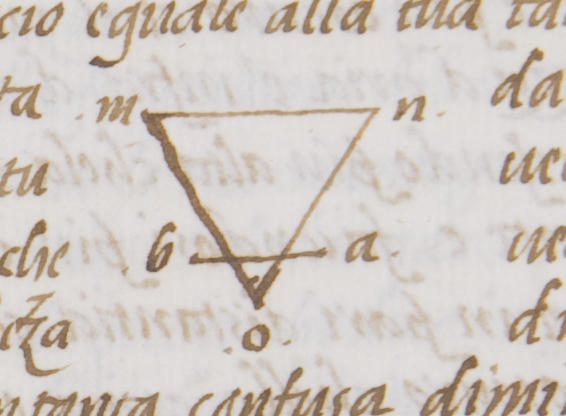 cio equale alla tua ta
ta . m n . da
tu ue
che . b a . ue
za . o . di
tanta confusa dimi